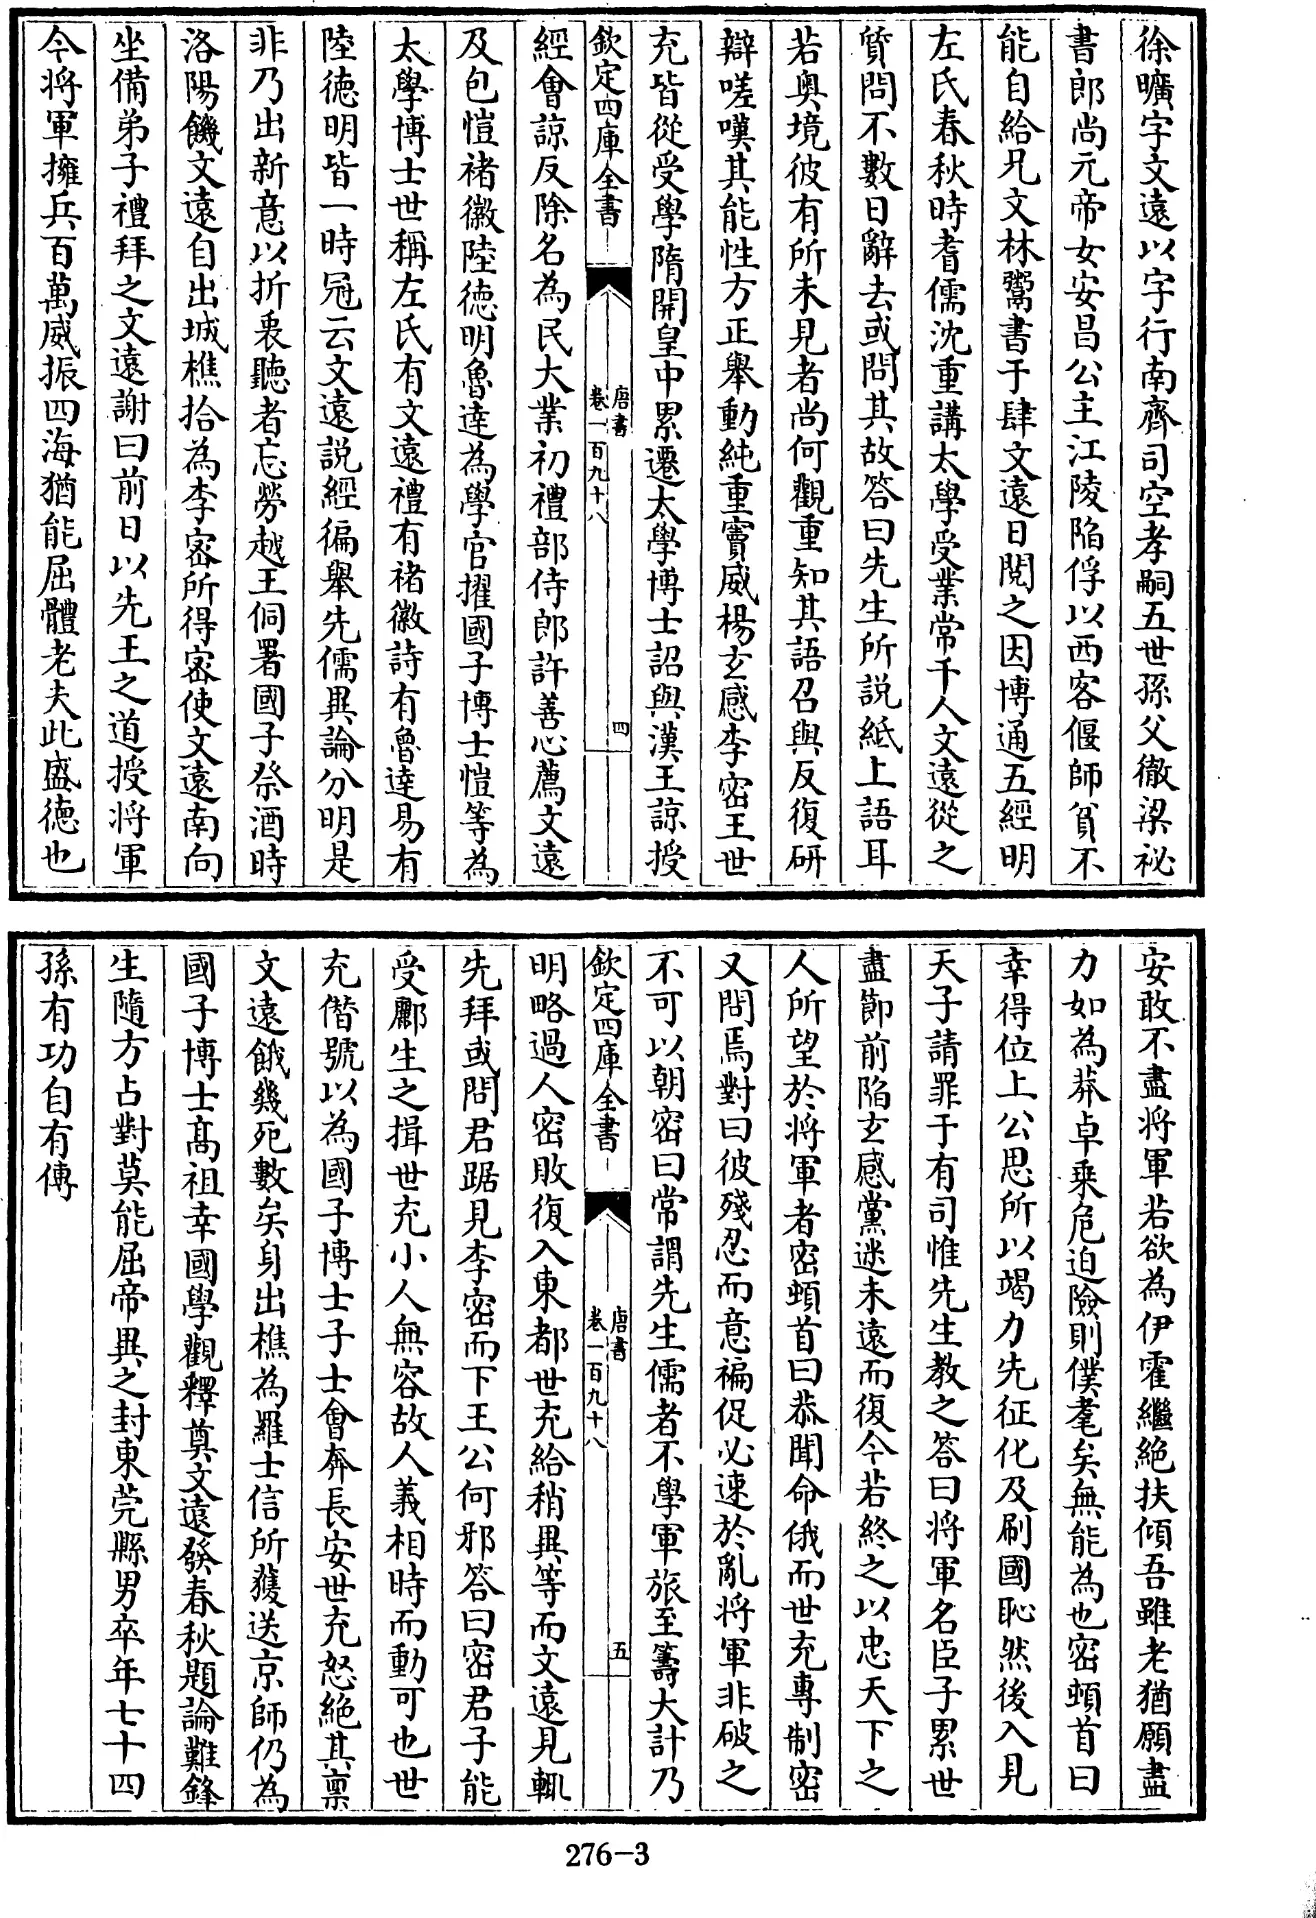 徐曠字文遠以字行南齊司空孝嗣五世孫父徹梁祕
書郎尚元帝女安昌公主江陵陷俘以西客偃師貧不
能自給兄文林鬻書于肆文遠日閱之因博通五經明
左氏春秋時耆儒沈重講太學受業常千人文遠從之
質問不數日辭去或問其故答曰先生所説紙上語耳
若奥境彼有所未見者尚何觀重知其語召與反復研
辯嗟嘆其能性方正舉動純重竇威楊玄感李密王世
充皆從受學隋開皇中累遷太學博士詔與漢王諒授
欽定四庫全書
唐書
卷一百九十八
四
經會諒反除名為民大業初禮部侍郎許善心薦文遠
及包愷褚徽陸德明魯達為學官擢國子博士愷等為
太學博士世稱左氏有文遠禮有褚徽詩有魯達易有
陸德明皆一時冠云文遠説經徧舉先儒異論分明是
非乃出新意以折衷聽者忘勞越王侗署國子祭酒時
洛陽饑文遠自出城樵拾為李密所得密使文遠南向
坐備弟子禮拜之文遠謝曰前日以先王之道授將軍
今將軍擁兵百萬威振四海猶能屈體老夫此盛德也
安敢不盡將軍若欲為伊霍繼絶扶傾吾雖老猶願盡
力如為莽卓乘危迫險則僕耄矣無能為也密頓首曰
幸得位上公思所以竭力先征化及刷國恥然後入見
天子請罪于有司惟先生教之答曰將軍名臣子累世
盡節前陷玄感黨迷未遠而復今若終之以忠天下之
人所望於將軍者密頓首曰恭聞命俄而世充專制密
又問焉對曰彼殘忍而意褊促必速於亂將軍非破之
不可以朝密曰常謂先生儒者不學軍旅至籌大計乃
欽定四庫全書
唐書
卷一百九十八
五
明略過人密敗復入東都世充給稍異等而文遠見輒
先拜或問君踞見李密而下王公何邪答曰密君子能
受酈生之揖世充小人無容故人義相時而動可也世
充僭號以為國子博士子士會奔長安世充怒絶其禀
文遠餓幾死數矣身出樵為羅士信所獲送京師仍為
國子博士髙祖幸國學觀釋奠文遠發春秋題論難鋒
生隨方占對莫能屈帝異之封東莞縣男卒年七十四
孫有功自有傳
276-3